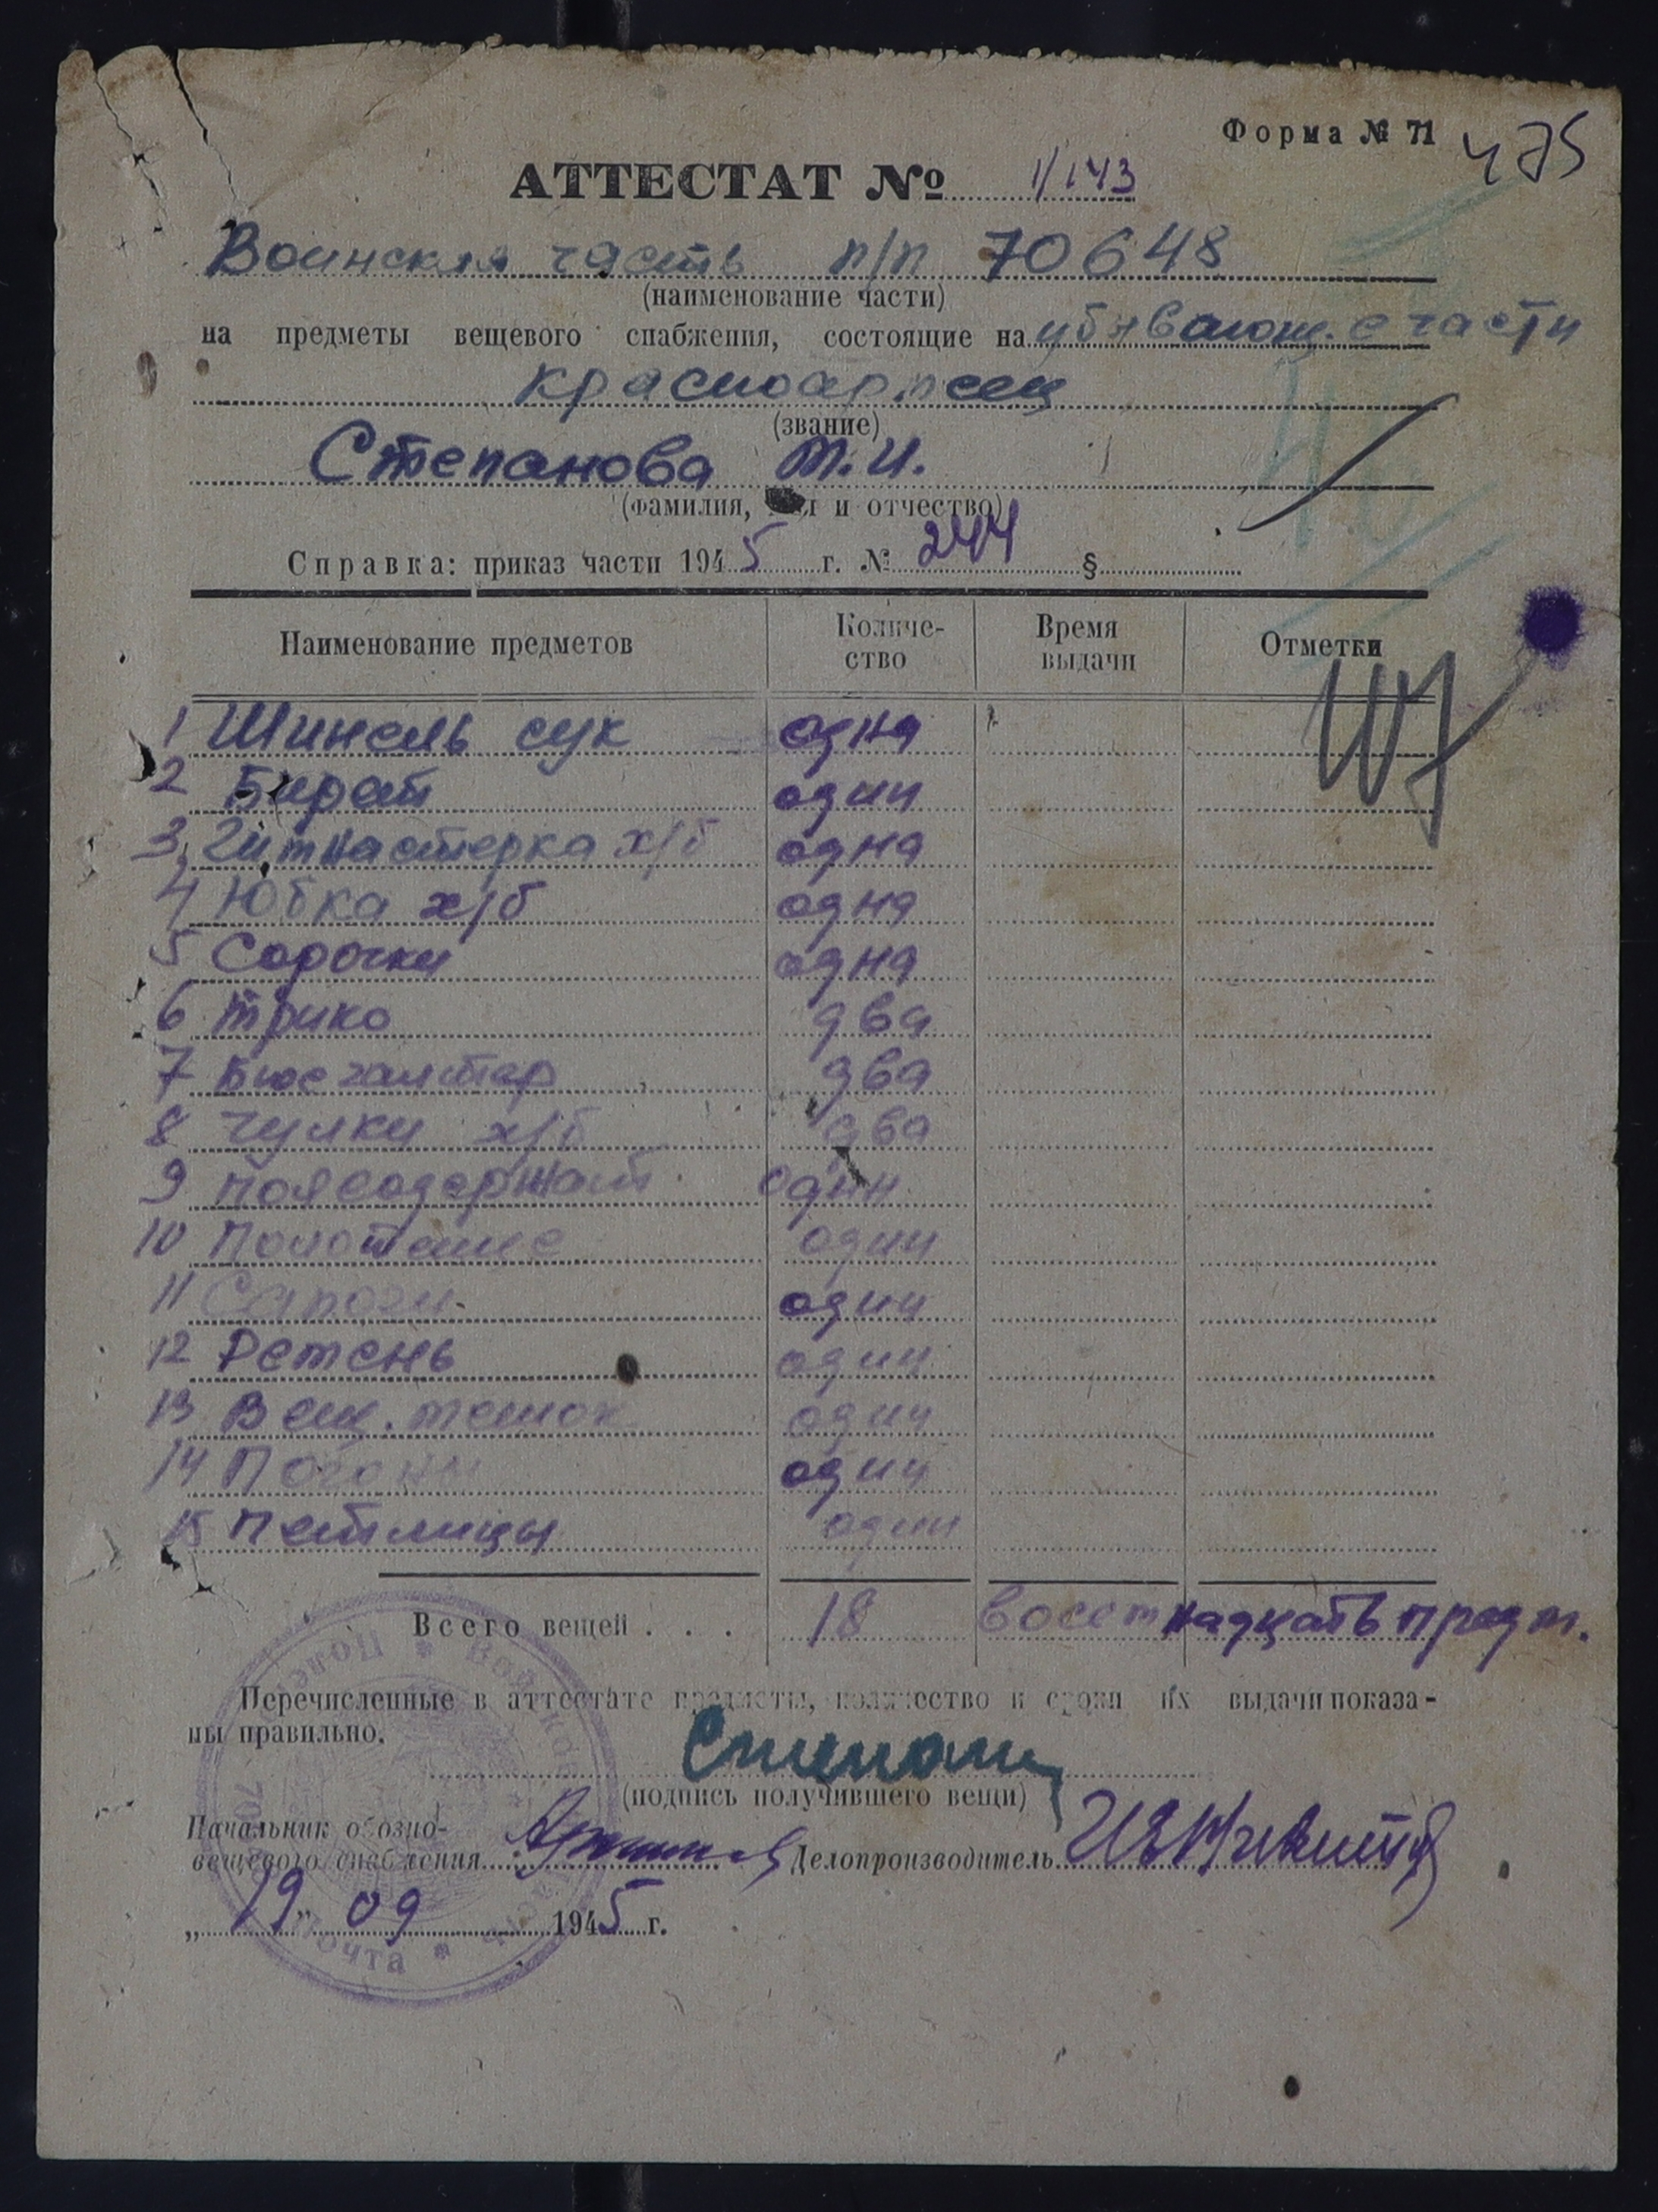 Форма № 71 475
АТТЕСТАТ № 1/143
Воинская часть п/п 70648
(наименование части)
на предметы вещевого снабжения, состоящие на убывающ. с части
красноармеец
(звание)
Степанова М.И.
(фамилия, и отчество)
Справка: приказ части 1945 г. № 244 §
Наименование предметов Количе-ство Время выдачи Отметки
1 Шинель сук одна
2 Бират один
3, Гимнастерка х/б одна
4 Юбка х/б одна
5 Сорочки одна
6 трико два
7 Бюсгалтер два
8 Чулки х/б два
9 поясодержат. один
10 Полотенце один
11 Сапоги один
12 Ремень один
13 Вещ. мешок один
14 Погоны один
15 Петлицы один
Всего вещей . . . 18 восемнадцать предм.
Перечисленные в аттестате предметы, количество и сроки их выдачи показа-
ны правильно.
Степан
(подпись получившего вещи)
Начальник обозно-
вещевого снабжения Делопроизводитель
„19" 09 1945 г.
Полевая * Войсков
почта *